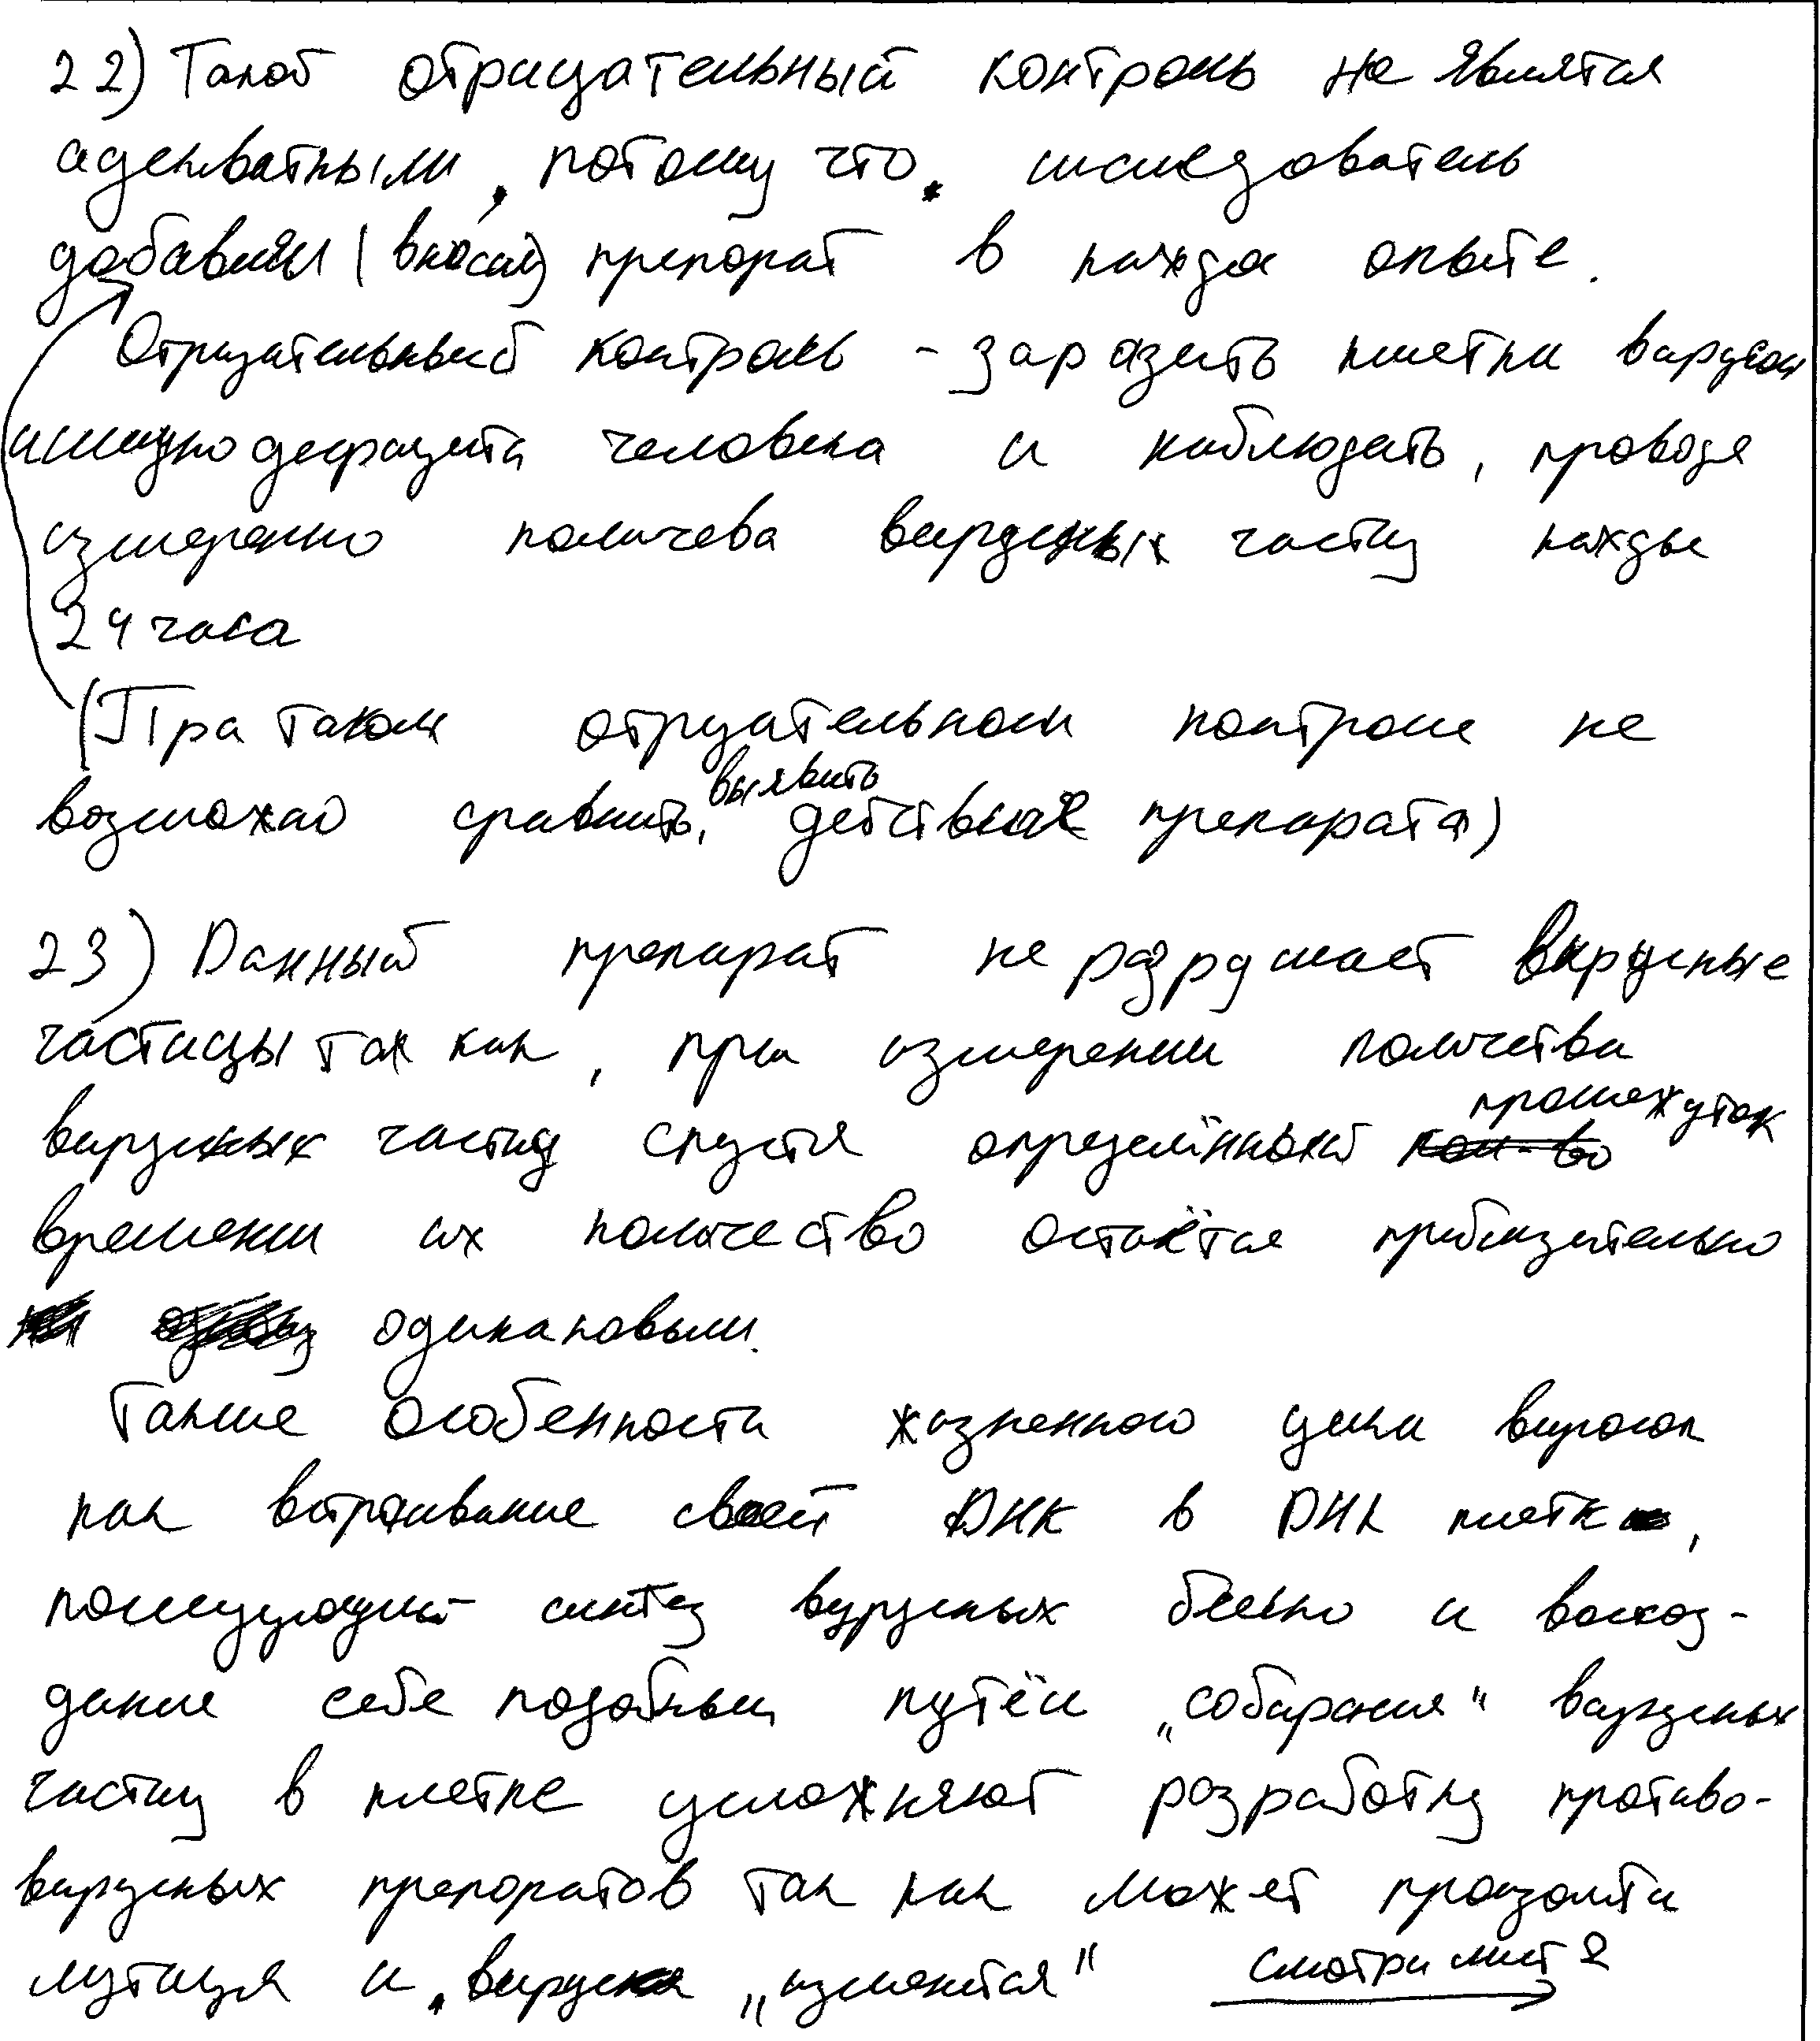 22) Такой отрицательный контроль не являтся
адекватными, потому что исследователь
добавили (вносил) препорат в кажда опыте.
Отрицательный контроль - заразить клетки вирусом
иммунодефицита человека и наблюдать, проводя
измеренио количева вирусных частиц кажды
24 часа
(При таком отрцательном контроле не
возможно сравнить, выявить действие препарата)
23) Данный препарат не разрушает вирусные
частицы так как, при измерении количства
вирусных частиц спустя определённый промежуток
времени их количество остаётся приблизительно
одинаковыми.
Такие особенности жизненного цикла вирусов
как встраивание своей ДНК в ДНК клетк,
последующий синтез вирусных белко и воссоз-
дание себе подобных путём „собирания" вирусных
частиц в клетке усложняют розработку противо-
вирусных препоратов так как может произойти
мутация и вирус „изменится" смотри лист 2